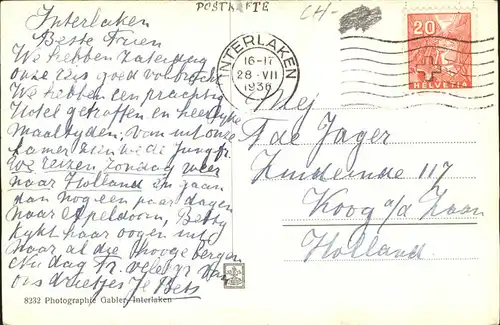 POSTKARTE
CH-
Interlaken
Beste Truen
We hebben Zaterdag
onze reis goed volbracht
We hebben een prachtig
Hotel getroffen en heerlijke
maaltijden, van uit onze
kamer zien we de Jungfr.
We reizen Zondag weer
naar Holland en gaan
dan nog een paar dagen
naar Apeldoorn, Betsy
kijkt haar oogen uit
naar al die hooge bergen
Nu dag Tr. veel gr van
ons drietjes Je Bets
8232 Photographie Gabler, Interlaken
INTERLAKEN
16-17
28·VII
1936
20
HELVETIA
Mej
T de Jager
Zuideinde 117
Koog a/d Zaan
Holland